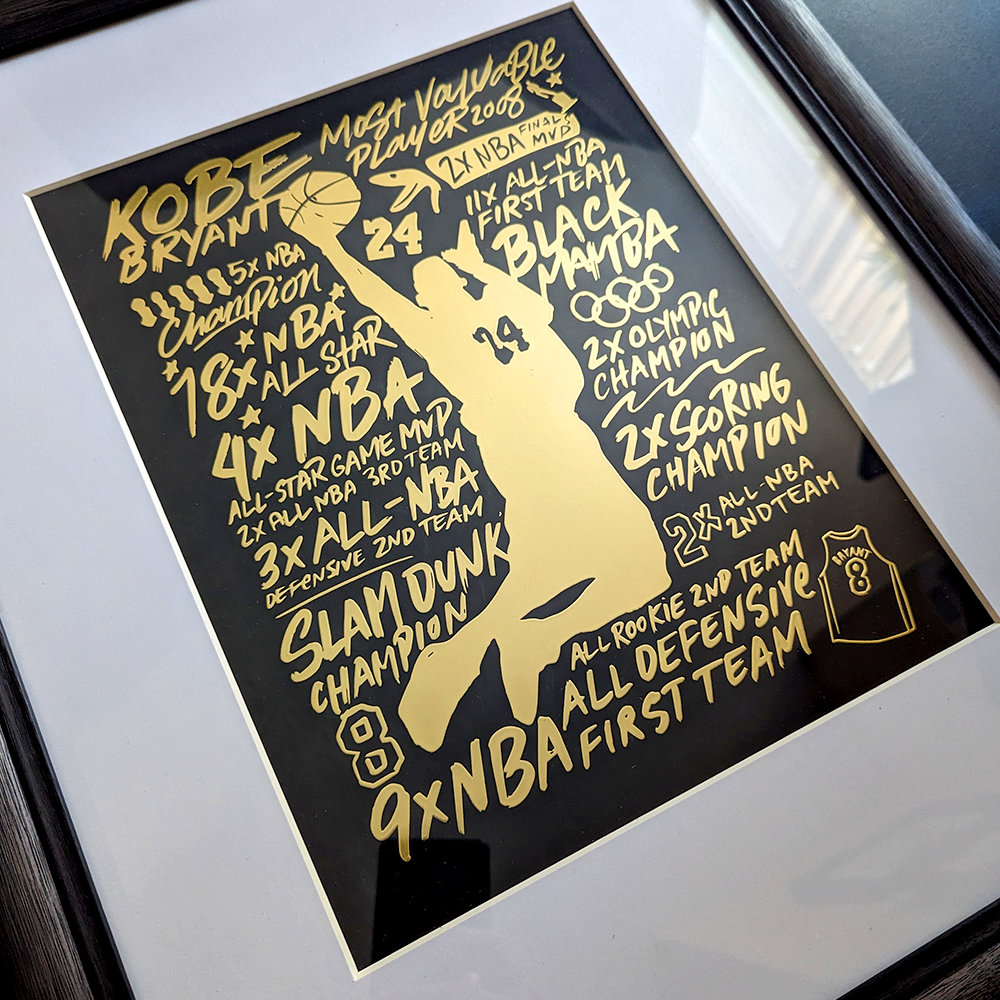 KOBE
BRYANT
MOST VALUABLE
PLAYER 2008
2X NBA FINALS
MVP
24
11X ALL-NBA
FIRST TEAM
BLACK
MAMBA
5X NBA
CHAMPION
18X NBA
ALL STAR
24
2X OLYMPIC
CHAMPION
4X NBA
ALL-STAR GAME MVP
2X ALL NBA 3RD TEAM
3X ALL-NBA
DEFENSIVE 2ND TEAM
2X SCORING
CHAMPION
2X ALL-NBA
2ND TEAM
SLAM DUNK
CHAMPION
8
BRYANT
8
ALL ROOKIE 2ND TEAM
9X NBA ALL DEFENSIVE
FIRST TEAM